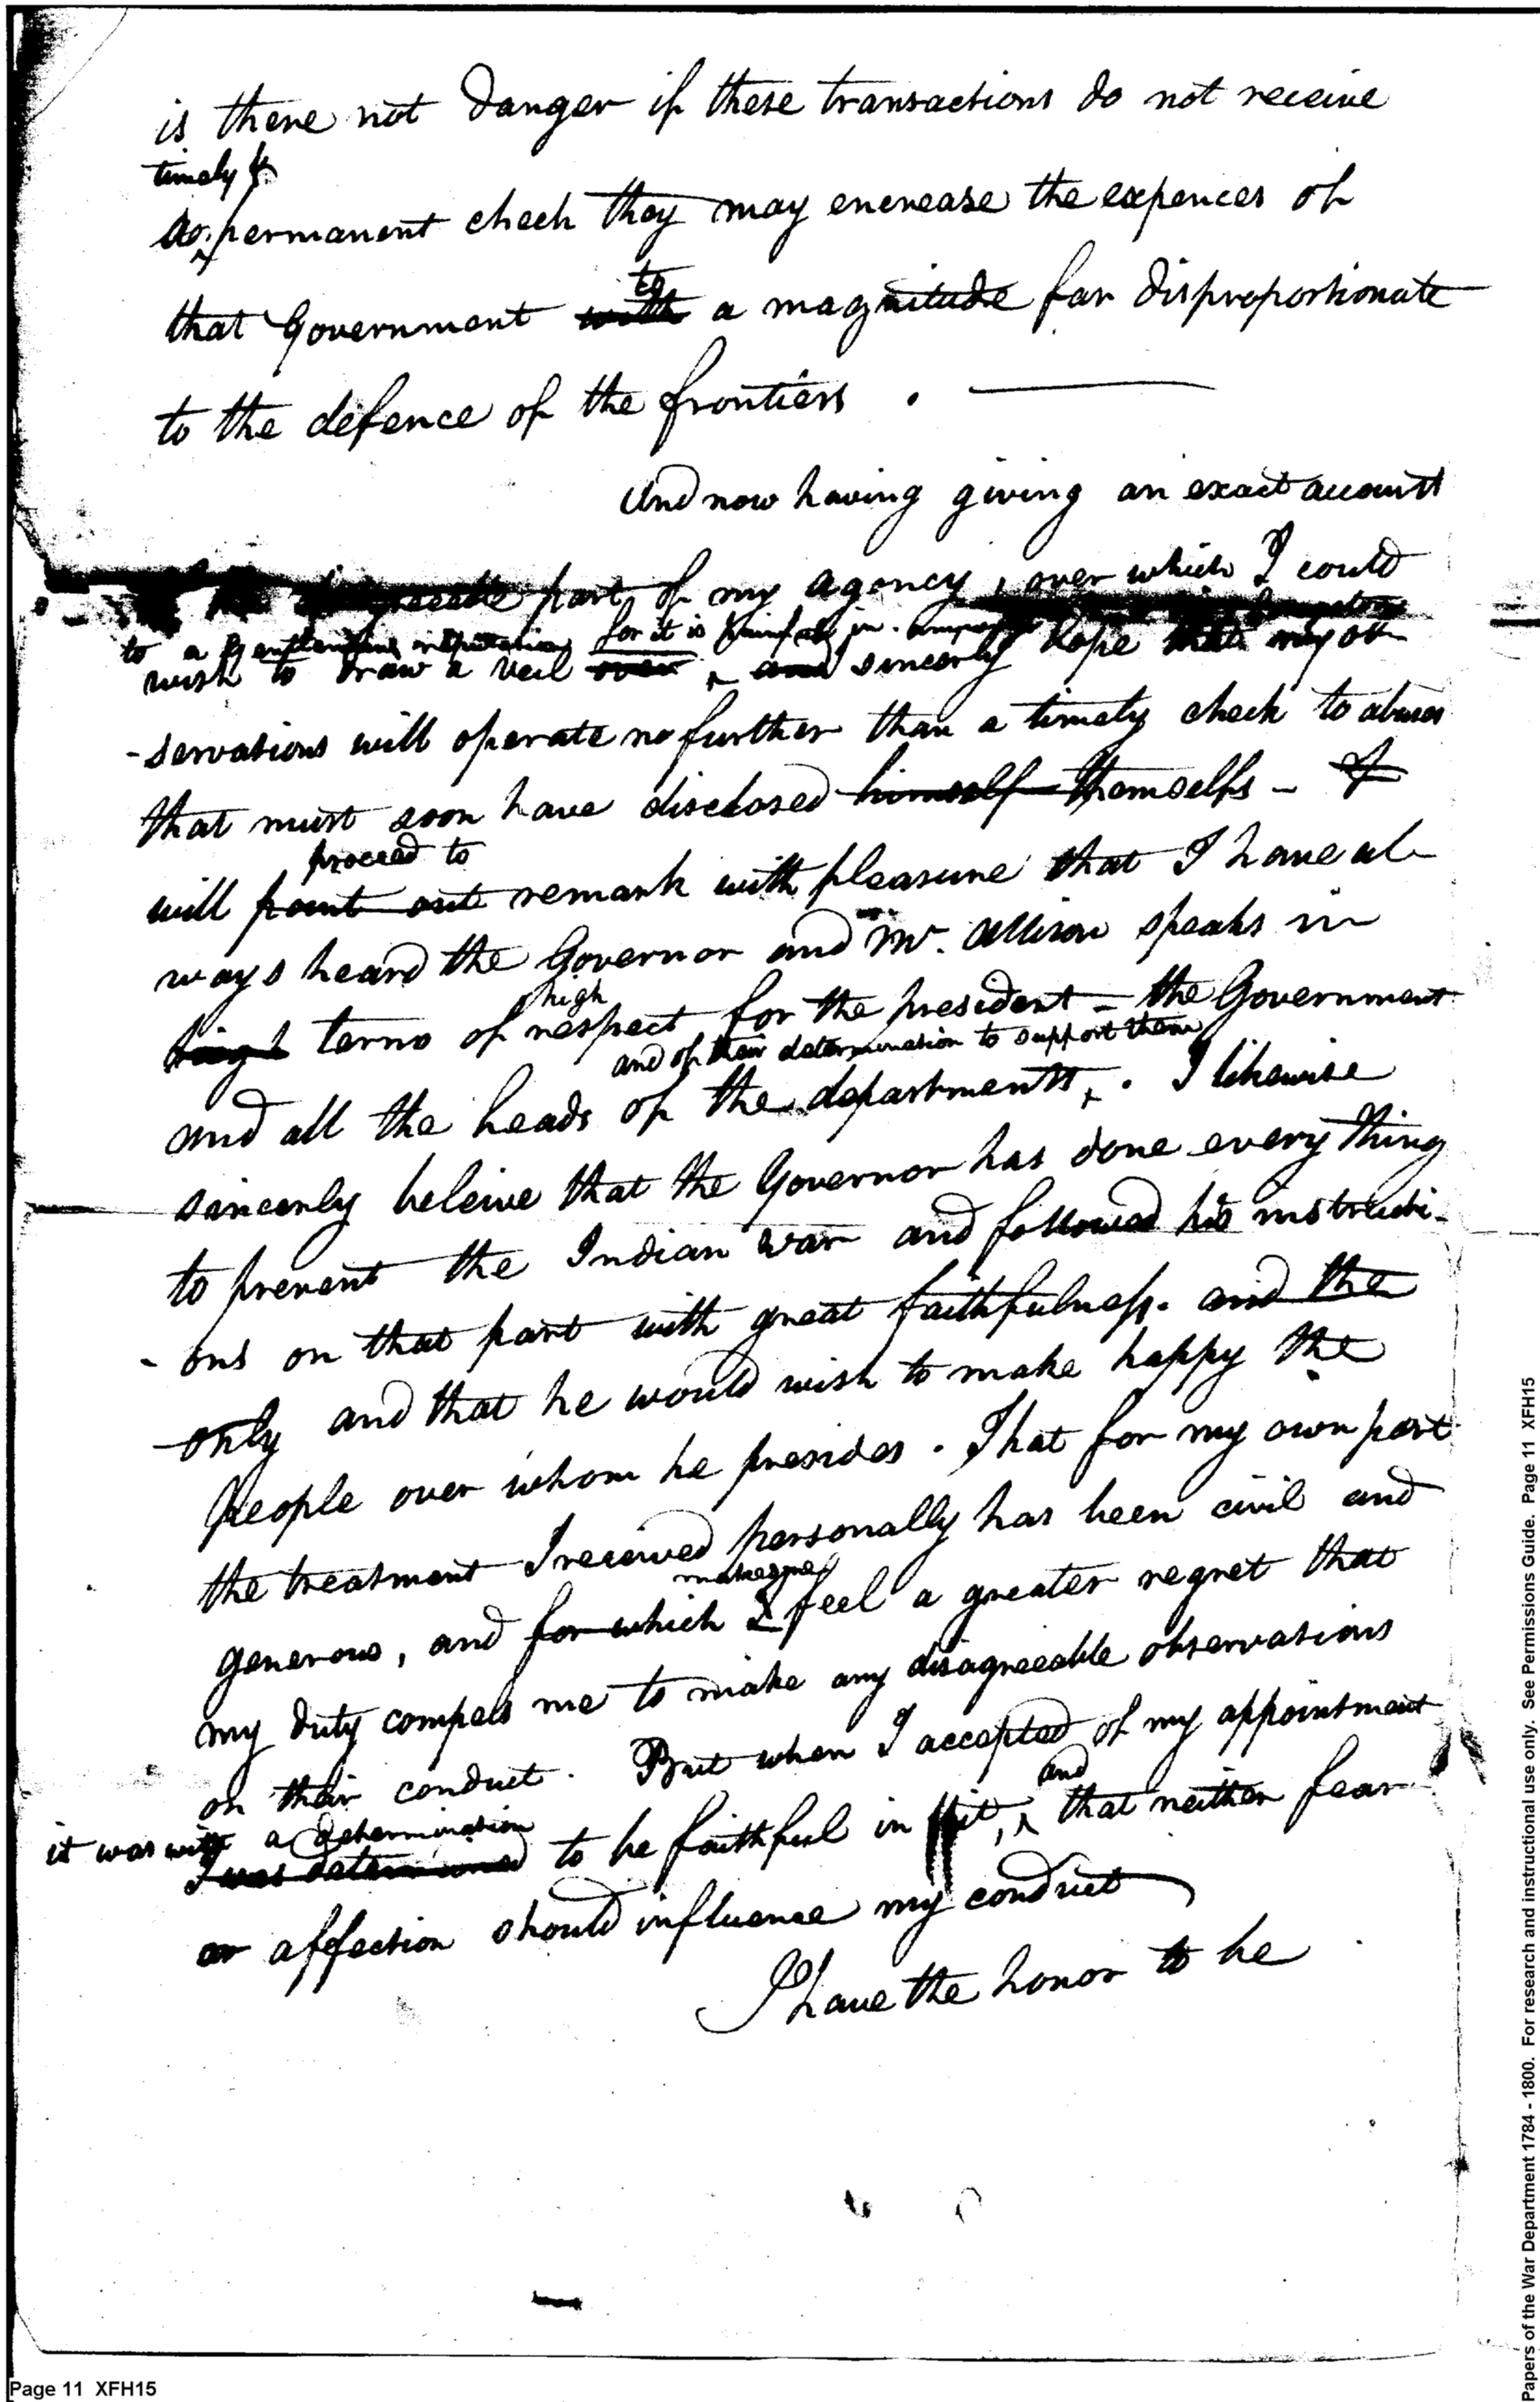 is there not danger if these transactions do not receive
timely &
a permanent check they may encrease the expences of
to
that Government with a magnitude far disproportionate
to the defence of the frontiers . —
And now having giving an exact account
part of my agency, over which I could
to a Gentlemans reputation for it is painful in
wish to draw a veil over, and sincerly hope that my ob
-servations will operate no further than a timely check to abuses
that must soon have disclosed himself themselfs - I
proceed to
will point out remark with pleasure that I have al-
ways heard the Governor and Mr. Allison speaks in
high
high terms of respect for the president - the Government
and of their determination to support them
and all the heads of the departments, . I likewise
sincerly beleive that the Governor has done every thing
to prevent the Indian war and followed his instructi-
- ons on that part with great faithfulness. and the
only and that he would wish to make happy the
People over whom he presides . That for my own part
the treatment I received personally has been civil and
makes me
generous, and for which I feel a greater regret that
my duty compels me to make any disagreeable observations
on their conduct . But when I accepted of my appointment
and
it was with a determination
I was determined to be faithful in it, that neither fear
or affection should influence my conduct
I have the honor to be
Page 11 XFH15
Papers of the War Department 1784 - 1800. For research and instructional use only. See Permissions Guide. Page 11 XFH15